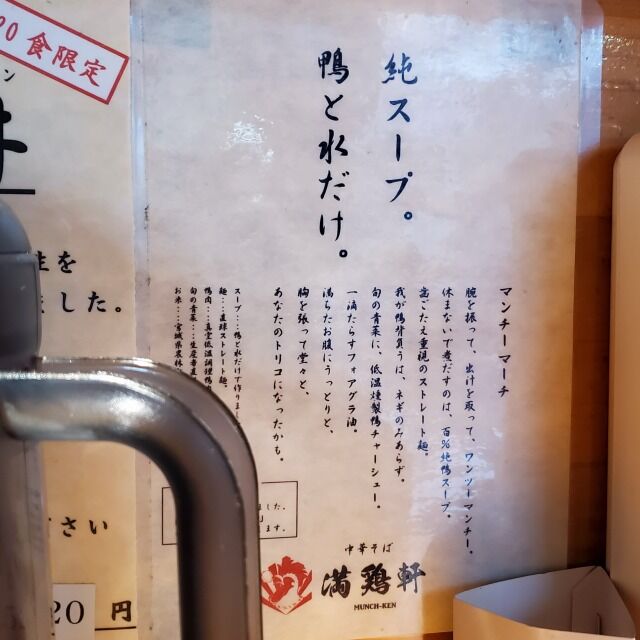 純スープ。
鴨と水だけ。
マンチーマーチ
腕を振って、出汁を取って、ワンツーマンチー。
休まないで煮だすのは、百%純鴨スープ。
歯ごたえ重視のストレート麺。
我が鴨背負うは、ネギのみあらず。
旬の青菜に、低温燻製鴨チャーシュー。
一滴たらすフォアグラ油。
満ちたお腹にうっとりと、
胸を張って堂々と、
あなたのトリコになったかも。
スープ…鴨と水だけで作りま
麺…全粒
ストレート麺。
鴨肉…真空低温調理鴨
旬の青菜…生産者直
お米…宮城県農
ました。
ます。
中華そば
満鶏軒
MUNCH-KEN
00食限定
ン
生を
ました。
ださい
20 円